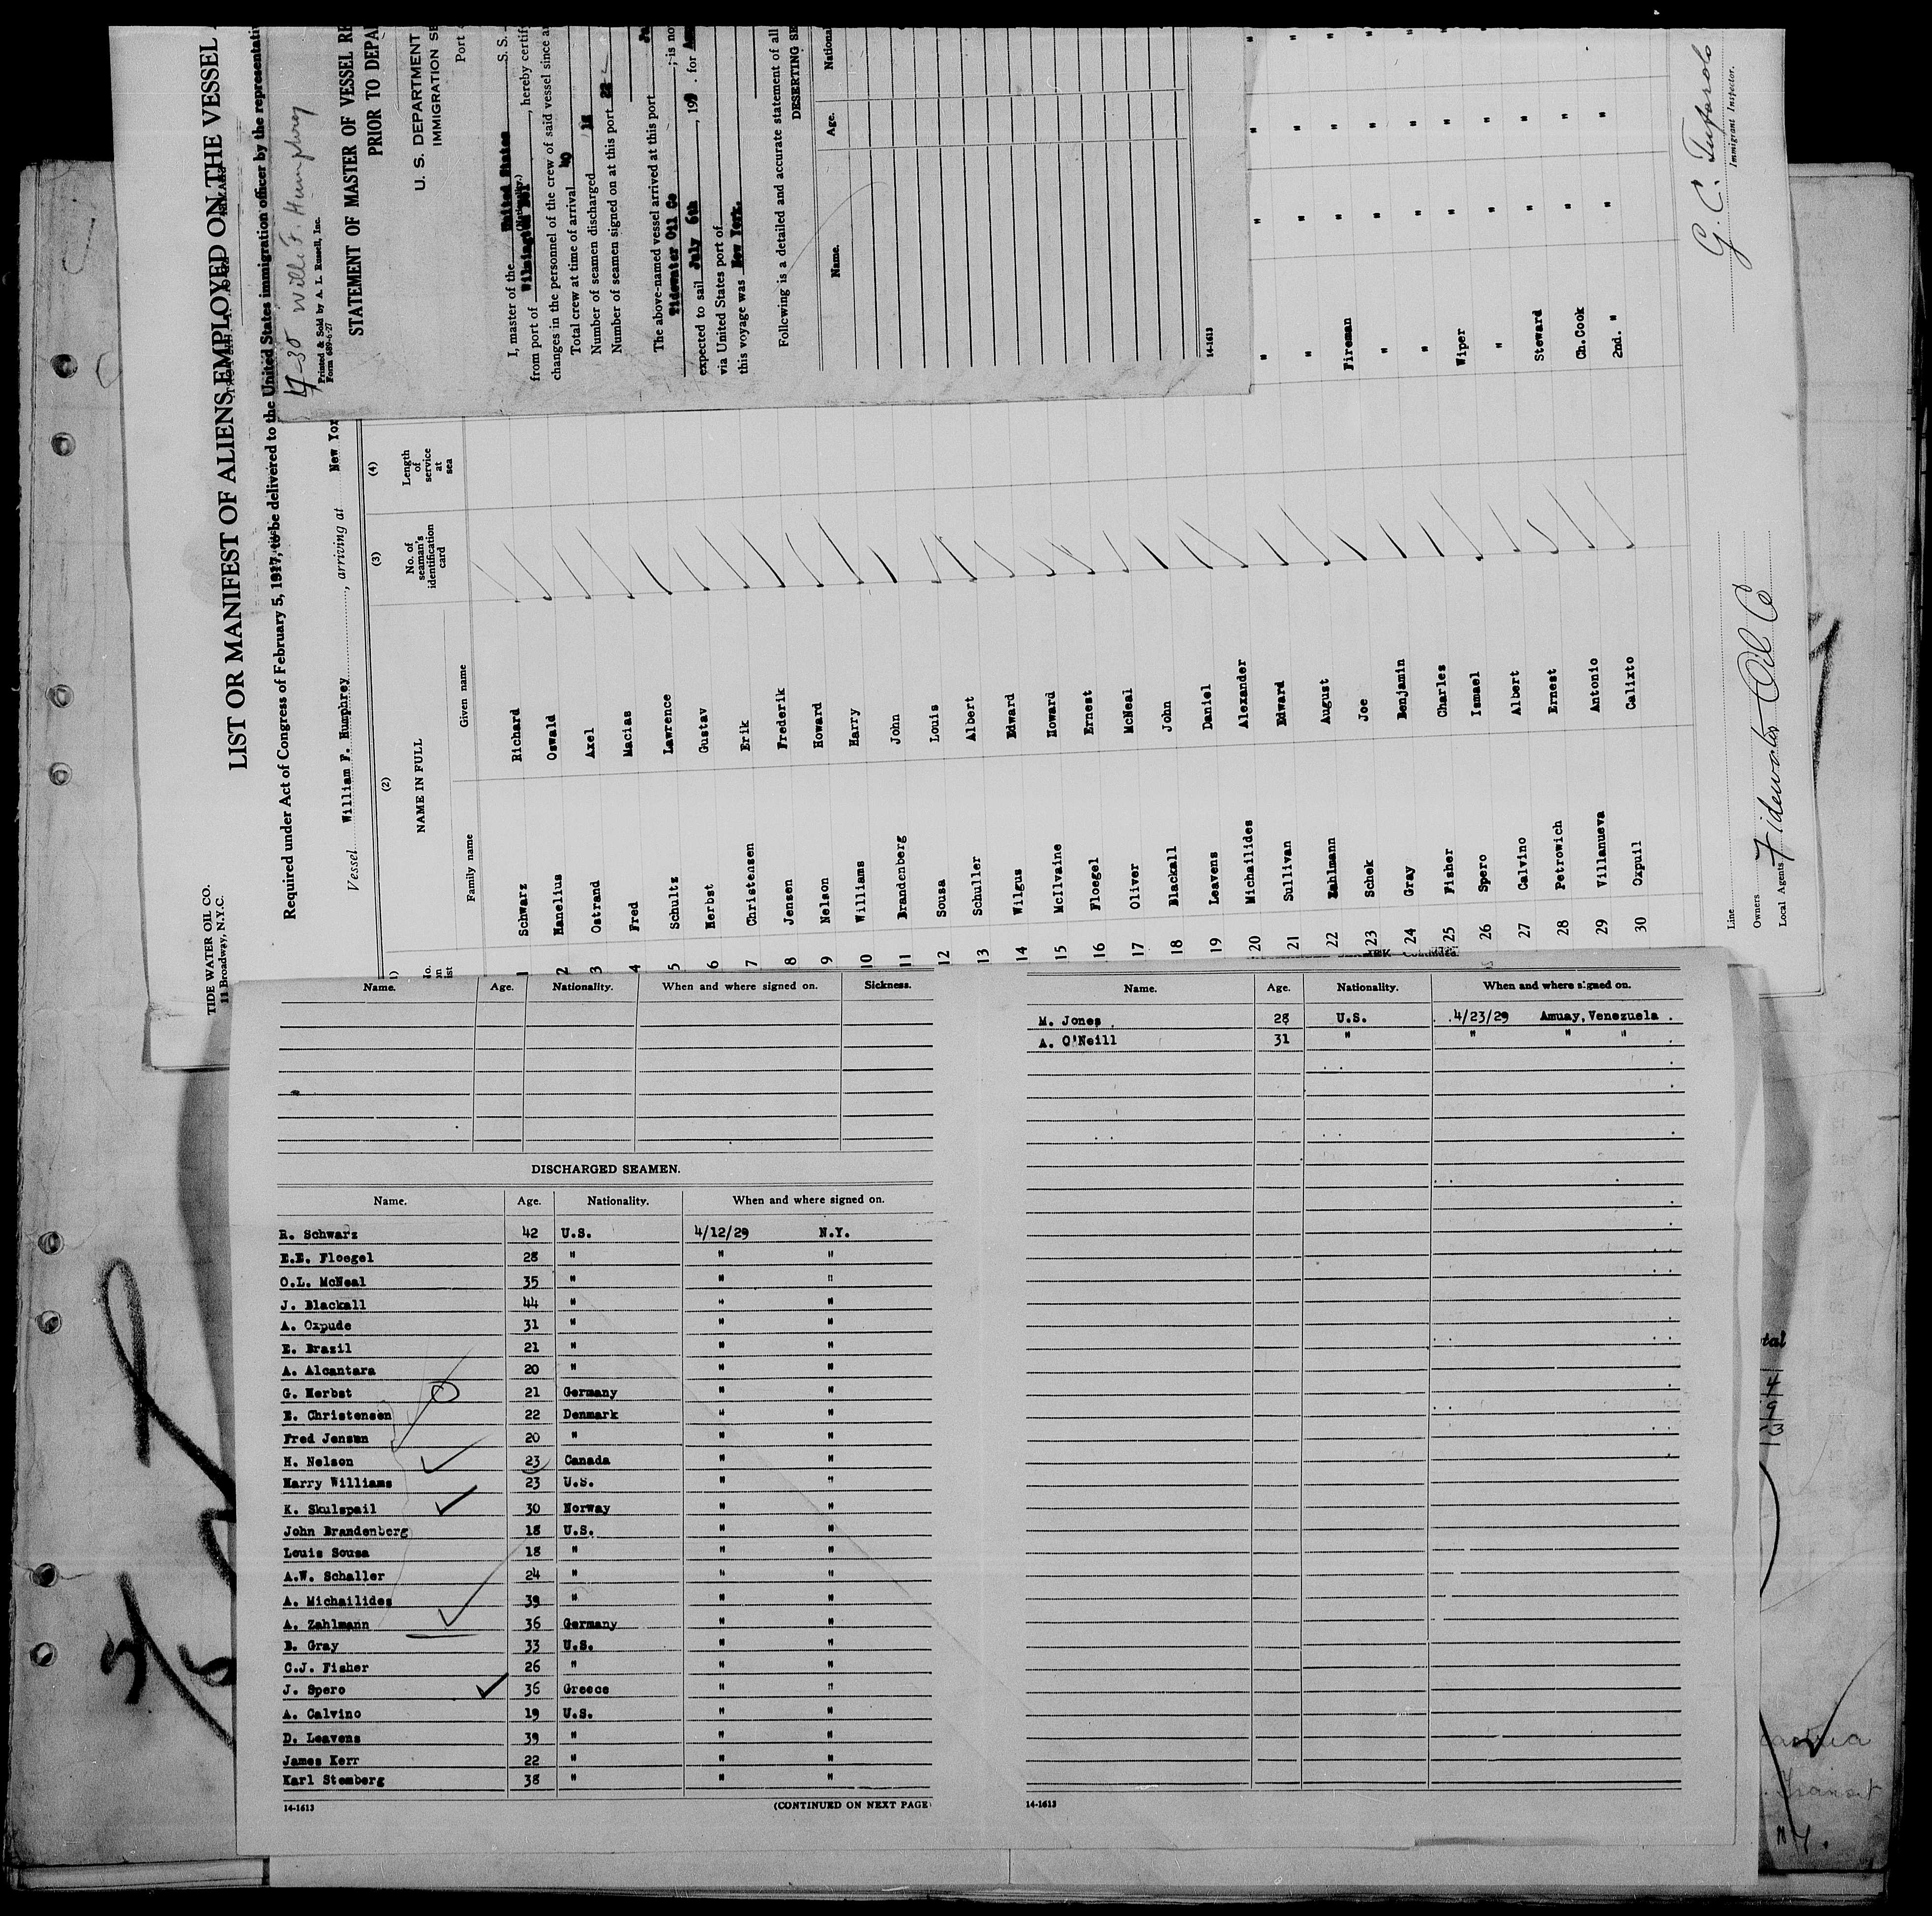 TIDE WATER OIL CO.
11 Broadway, N.Y.C.
LIST OR MANIFEST OF ALIENS EMPLOYED ON THE VESSEL
Required under Act of Congress of February 5, 1917, to be delivered to the United States immigration officer by the representati
Vessel William F. Humphrey, arriving at New Yor
(2) (3) (4)
NAME IN FULL
No. of seaman's identification card
Length of service at sea
Family name Given name
1 Schwarz Richard
2 Hanelius Oswald
3 Ostrand Axel
4 Fred Macias
5 Schultz Lawrence
6 Herbst Gustav
7 Christensen Erik
8 Jensen Frederik
9 Nelson Howard
10 Williams Harry
11 Brandenberg John
12 Sousa Louis
13 Schuller Albert
14 Wilgus Edward
15 McIlvaine Howard
16 Floegel Ernest
17 Oliver McNeal
18 Blackall John
19 Leavens Daniel
20 Michailides Alexander "
21 Sullivan Edward "
22 Zahlmann August Fireman
23 Schek Joe "
24 Gray Benjamin "
25 Fisher Charles Wiper
26 Spero Ismael "
27 Calvino Albert Steward
28 Petrowich Ernest Ch.Cook
29 Villanueva Antonio 2nd. "
30 Oxpuil Calixto
Line
Owners
Local Agents Tidewater Oil Co
G. C.
Immigrant Inspector.
Willi F. Humphrey
Printed & Sold by A. L. Russell, Inc.
Form 689-6-27
STATEMENT OF MASTER OF VESSEL RE
PRIOR TO DEPA
U. S. DEPARTMENT
IMMIGRATION SE
Port
I, master of the United States S. S.
(Nationality.)
from port of Wilmington Del, hereby certif
changes in the personnel of the crew of said vessel since a
Total crew at time of arrival 40
Number of seamen discharged 18
Number of seamen signed on at this port 22
The above-named vessel arrived at this port Ju
Tidewater Oil Co; is no
expected to sail July 6th, 19 . for
via United States port of
this voyage was New York.
Following is a detailed and accurate statement of all
DESERTING SE
Name. Age. National
14-1613
Name. Age. Nationality. When and where signed on. Sickness.
DISCHARGED SEAMEN.
Name. Age. Nationality. When and where signed on.
R. Schwarz 42 U.S. 4/12/29 N.Y.
E.E. Floegel 28 " " "
O.L. McNeal 35 " " "
J. Blackall 44 " " "
A. Oxpude 31 " " "
E. Brazil 21 " " "
A. Alcantara 20 " " "
G. Herbst 21 Germany " "
E. Christensen 22 Denmark " "
Fred Jensen 20 " " "
H. Nelson 23 Canada " "
Harry Williams 23 U.S. " "
K. Skulspail 30 Norway " "
John Brandenberg 18 U.S. " "
Louis Sousa 18 " " "
A.W. Schaller 24 " " "
A. Michailides 39 " " "
A. Zahlmann 36 Germany " "
B. Gray 33 U.S. " "
C.J. Fisher 26 " " "
J. Spero 36 Greece " "
A. Calvino 19 U.S. " "
D. Leavens 39 " " "
James Kerr 22 " " "
Karl Stemberg 38 " " "
14-1613 (CONTINUED ON NEXT PAGE)
Name. Age. Nationality. When and where signed on.
M. Jones 28 U.S. 4/23/29 Amuay, Venezuela
A. O'Neill 31 " " " "
14-1613